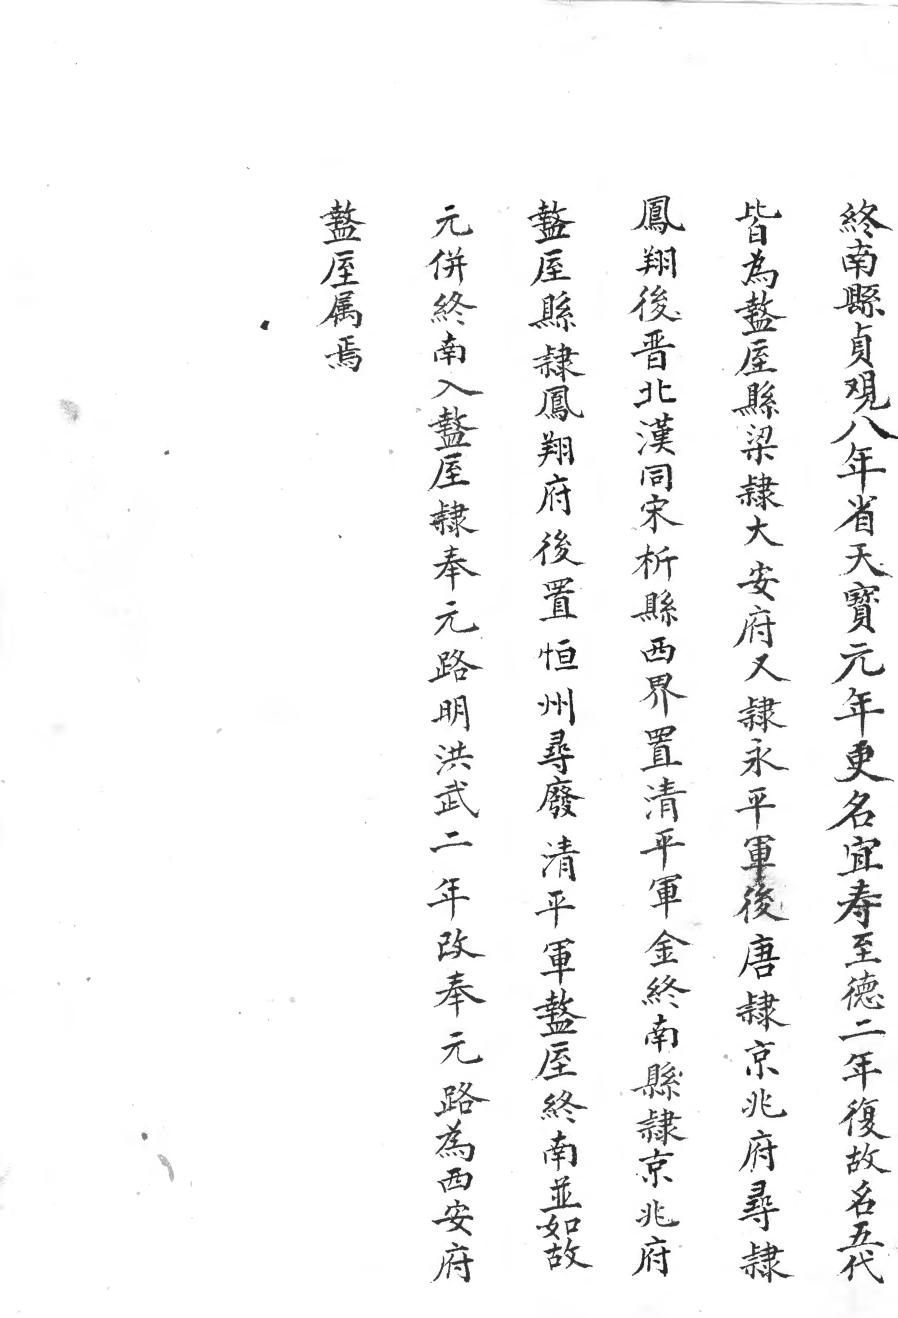 終南縣貞观八年省天寳元年更名宜寿至德二年復故名五代
皆為盩厔縣梁隸大安府又隸永平軍後唐隸京兆府尋隸
鳳翔後晋北漢同宋析縣西界置清平軍金終南縣隸京兆府
盩厔縣隸鳳翔府後置恒州尋廢清平軍盩厔終南並如故
元併終南入盩厔隸奉元路明洪武二年改奉元路為西安府
盩厔属焉